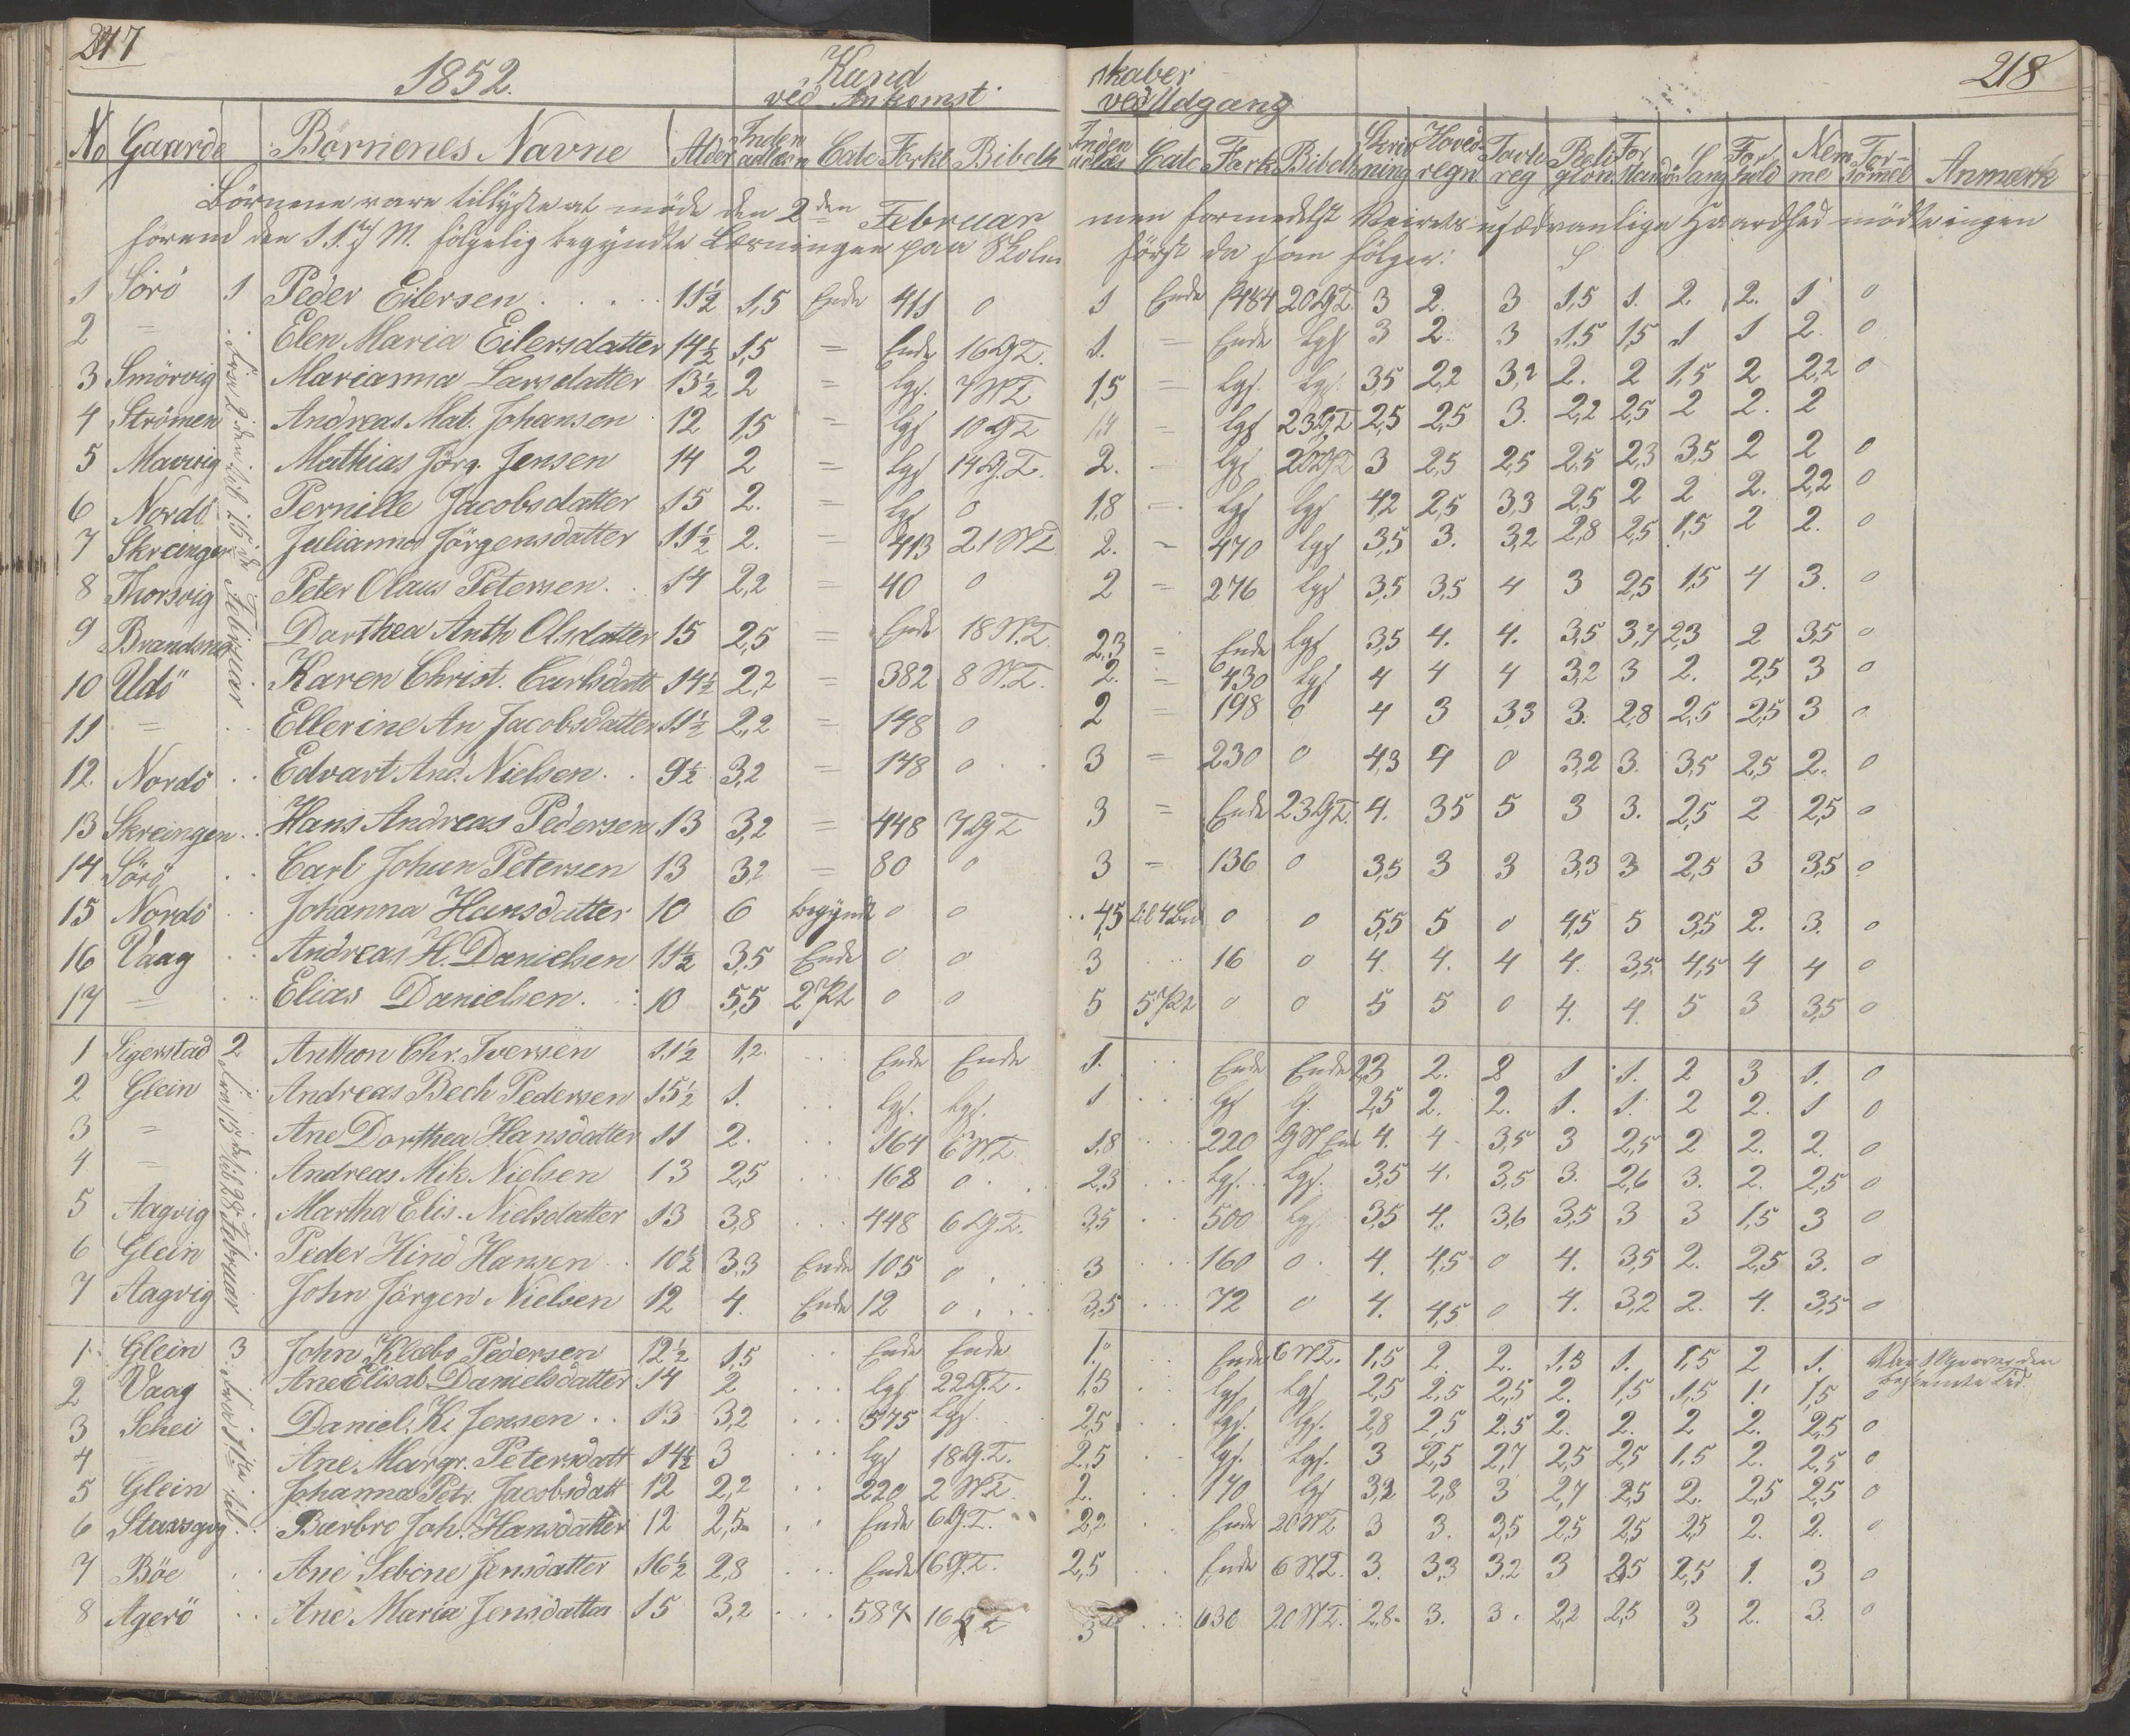 217
1852.
Kund
ved Ankomst
skaber
ved Udgang
218
No Gaarde Börnenes Navne Alder Inden udlæsn Catc Forkl Bibelh Inden udlæs Catc Fork Bibelh Skriv ning Hoved regn Tavle reg Reli gion For stand Sang For hold Nem me For sömel Anmærk
Börnene vare tillyste at möde den 2den Februar men formedelst Veirets usædvanlige Haardhed mödte ingen
förend den 11. 7 M. fölgelig begyndte Læsningen paa Skolen först da som fölger:
1 Sörö 1 Peder Eilersen 11½ 1,5 Ende 411 0 1 Ende 484 20 G.T. 3 2. 3 1,5 1. 2. 2. 1 0
2 = Elen Maria Eilersdatter 14½ 1,5 = Ende 16 G.T. 1. = Ende lgs 3 2. 3 1,5 1,5 1 1 2. 0
3 Smörvig Marianna Larsdatter 13½ 2 = lgs. 7 N.T. 1,5 = lgs. lgs. 3,5 2,2 3,2 2. 2 1,5 2 2,2 0
4 Strömen Andreas Mat. Johansen 12 1,5 = lgs 10 G.T. = lgs 23 G.T. 2,5 2,5 3. 2,2 2,5 2 2. 2
5 Mavig Mathias Jörg. Jensen 14 2 = lgs 14 G.T. 2. lgs 20 N.T. 3 2,5 2,5 2,5 2,3 3,5 2 2 0
6 Nordö Pernille Jacobsdatter 15 2. = lgs 0 1,8 lgs lgs 4,2 2,5 3,3 2,5 2 2 2. 2,2 0
7 Skreingen Julianna Jörgensdatter 11½ 2. = 413 21 N.T. 2. = 470 lgs 3,5 3. 3,2 2,8 2,5 1,5 2 2. 0
8 Thorsvig Peter Olaus Petersen 14 2,2 = 40 0 2 = 276 lgs 3,5 3,5 4 3 2,5 1,5 4 3. 0
9 Brandsnes Darthea Anth Olsdatter 15 2,5 = Ende 18 N.T. 2,3 = Ende lgs 3,5 4. 4. 3,5 3,7 2,3 2 3,5 0
10 Udö Karen Christ. Carlsdatt 14½ 2,2 = 382 8 N.T. 2. = 430 lgs 4 4 4 3,2 3 2. 2,5 3 0
11 = Ellerine An Jacobsdatter 11½ 2,2 = 148 0 2 = 198 6 4 3 3,3 3. 2,8 2,5 2,5 3 0
12. Nordö Edvart And. Nielsen 9½ 3,2 = 148 0 3 = 230 0 4,3 4 0 3,2 3. 3,5 2,5 2. 0
13 Skreingen Hans Andreas Pedersen 13 3,2 = 448 7 G.T. 3 = Ende 23 G.T. 4. 3,5 5 3 3. 2,5 2 2,5 0
14 Sörö Carl Johan Petersen 13 3,2 = 80 0 3 = 136 0 3,5 3 3 3,3 3 2,5 3 3,5 0
15 Nordö Johanna Hansdatter 10 6 begyndt 0 0 4,5 til 4 Bud 0 0 5,5 5 0 4,5 5 3,5 2. 3. 0
16 Vaag Andreas H. Danielsen 11½ 3,5 Ende 0 0 3 16 0 4. 4. 4 4. 3,5 4,5 4 4 0
17 = Elias Danielsen 10 5,5 2 Pt 0 0 5 5 Pt 0 0 5 5 0 4. 4. 5 3 3,5 0
Fra 2den til 15de Februar
1 Sigerstad 2 Anthon Chr. Iversen 11½ 1,2. Ende Ende 1. Ende Ende 2,3 2. 2 1 1. 2 3 1. 0
2 Glein Andreas Bech Pedersen 15½ 1. lgs. lgs. 1 lgs lgs. 2,5 2. 2. 1. 1. 2 2. 1 0
3 = Ane Dorthea Hansdatter 11 2. 164 6 N.T. 1,8 220 4. 4 3,5 3 2,5 2 2. 2. 0
4 = Andreas Mik. Nielsen 13 2,5 168 0 2,3 lgs. lgs. 3,5 4. 3,5 3. 2,6 3. 2. 2,5 0
5 Aagvig Martha Elis. Nielsdatter 13 3,8 448 6 G.T. 3,5 500 lgs. 3,5 4. 3,6 3,5 3 3 1,5 3 0
6 Glein Peder Hind Hansen 10½ 3,3 Ende 105 0 3 160 0 4. 4,5 0 4. 3,5 2. 2,5 3. 0
7 Aagvig John Jörgen Nielsen 12 4. Ende 12 0 3,5 72 0 4. 4,5 0 4. 3,2 2. 4. 3,5 0
Fra 15de til 28 Februar
1 Glein 3 John Klæbo Pedersen 12½ 1,5 Ende Ende 1. Ende 6 N.T. 1,5 2. 2. 1,3 1. 1,5 2 1. Var 1 Uge over den bestemte Tid
2 Vaag Ane Elisab Danielsdatter 14 2 lgs 22 G.T. 1,5 lgs. lgs 2,5 2,5 2,5 2. 1,5 1,5 1. 1,5 0
3 Schei Daniel K. Jensen 13 3,2 575 lgs. 2,5 lgs. lgs. 2,8 2,5 2.5 2. 2. 2 2. 2,5 0
4 Ane Margr. Petersdatt 14½ 3 lgs 18 G.T. 2,5 lgs. lgs. 3 2,5 2,7 2,5 2,5 1,5 2. 2,5 0
5 Glein Johanna Petr. Jacobsdatt 12 2,2 220 2 N.T. 2. 170 lgs 3,2 2,8 3 2,7 2,5 2. 2,5 2,5 0
6 Barbro Joh. Hansdatter 12 2,5 Ende 6 G.T. 2,2 Ende 20 N.T. 3 3. 3,5 2,5 2,5 2,5 2. 2. 0
7 Böe Ane Sebine Jensdatter 16½ 2,8 Ende 6 G.T. 2,5 Ende 6 N.T. 3. 3,3 3,2 3 2,5 2,5 1. 3 0
8 Agerö Ane Maria Jensdatter 15 3,2 587 16 G.T. 3 636 20 N.T. 2,8 3. 3. 2,2 2,5 3 2. 3. 0